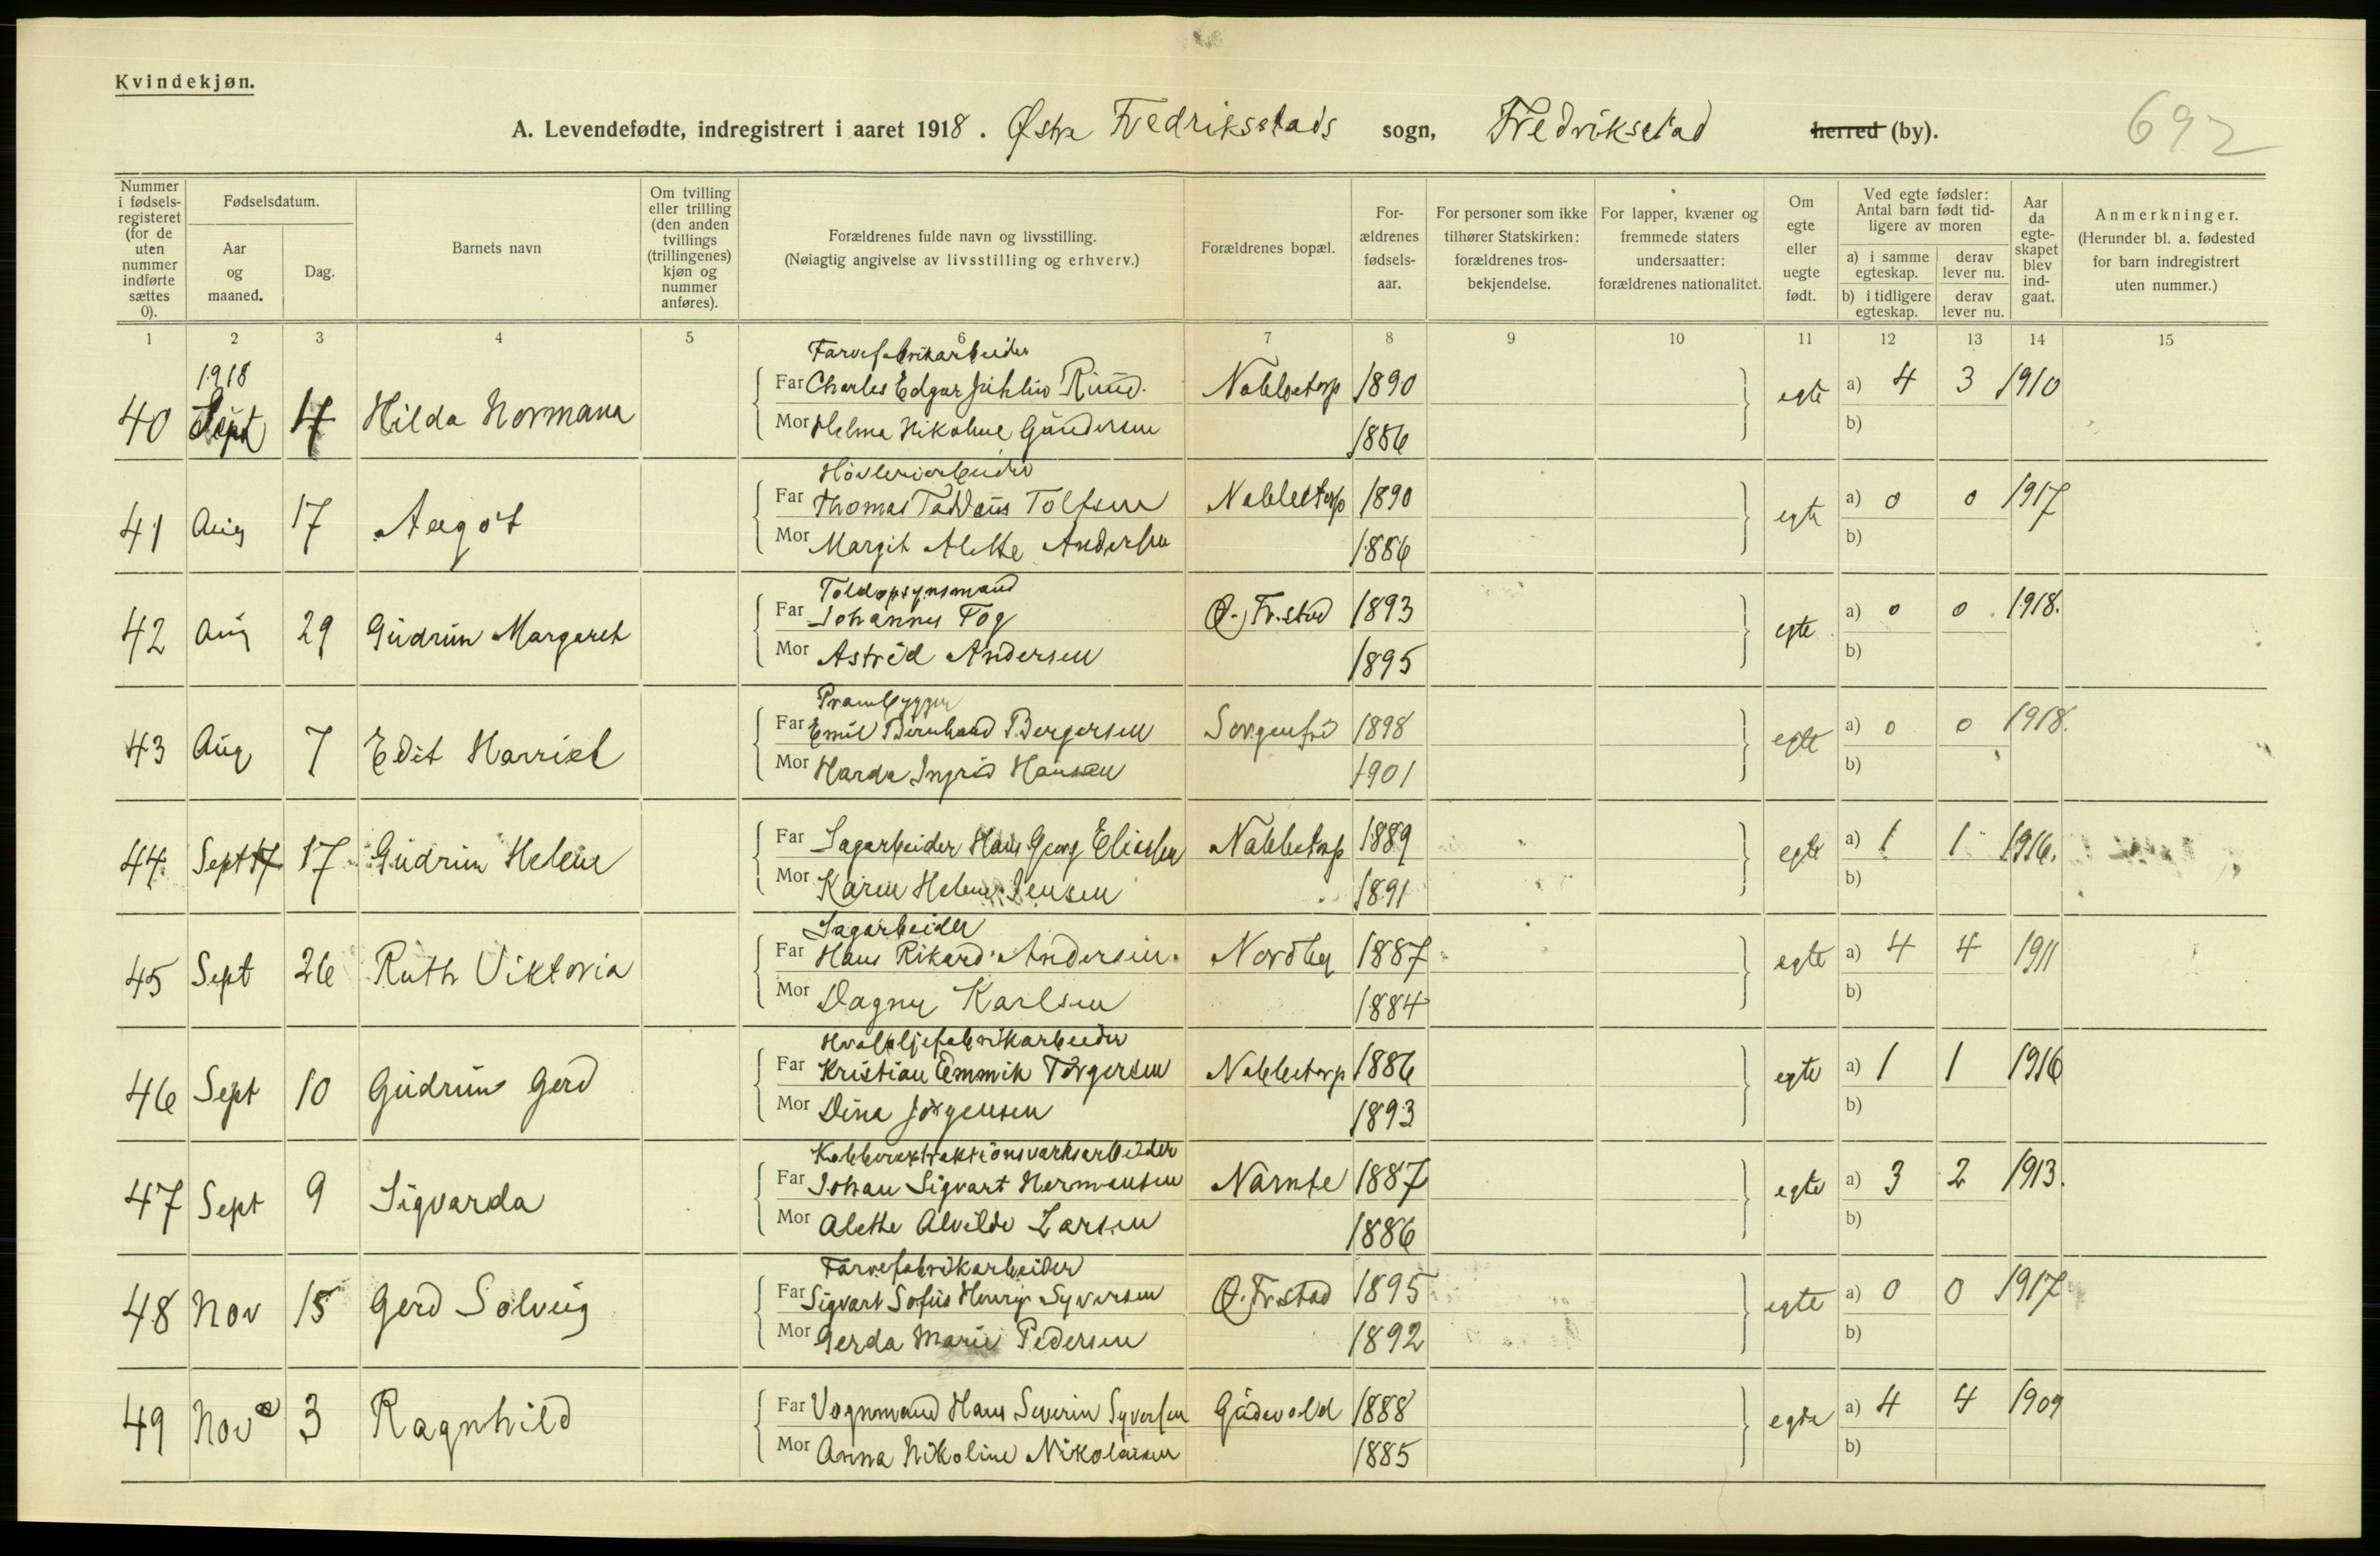 Kvindekjøn.
A. Levendefødte, indregistrert i aaret 1918. Østre Fredriksstads sogn, Fredriksstad herred (by). 692
Nummer i fødselsregisteret (for de uten nummer indførte sættes 0).
Fødselsdatum.
Aar og maaned.
Dag.
Barnets navn
Om tvilling eller trilling (den anden tvillings (trillingenes) kjøn og nummer anføres).
Forældrenes fulde navn og livsstilling.
(Nøiagtig angivelse av livsstilling og erhverv.)
Forældrenes bopæl.
Forældrenes fødselsaar.
For personer som ikke tilhører Statskirken: forældrenes trosbekjendelse.
For lapper, kvæner og fremmede staters undersaatter: forældrenes nationalitet.
Om egte eller uegte født.
Ved egte fødsler: Antal barn født tidligere av moren
a) i samme egteskap. derav lever nu.
b) i tidligere egteskap. derav lever nu.
Aar da egteskapet blev indgaat.
Anmerkninger.
(Herunder bl. a. fødested for barn indregistrert uten nummer.)
1 2 3 4 5 6 7 8 9 10 11 12 13 14 15
1918 Farvefabrikarbeider
40 Sept 4 Hilda Normana Far Charles Edgar Rund. Nabbetorp 1890 egte a) 4 3 1910
Mor Helma Nikoline Gundersen 1886 b)
Høvleriarbeider
41 Aug 17 Aagot Far Thomas Taddæus Tolfsen Nabbetorp 1890 egte a) 0 0 1917
Mor Margit Alette Andersen 1886 b)
Toldopsynsmand
42 Aug 29 Gudrun Margareth Far Johannes Fog Ø. Fr.stad 1893 egte a) 0 0 1918.
Mor Astrid Andersen 1895 b)
Prambygger
43 Aug 7 Edit Harriet Far Emil Bernhard Bergersen Sorgenfri 1898 egte a) 0 0 1918.
Mor Harda Ingrid Hansen 1901 b)
44 Sept 17 17 Gudrun Helene Far Sagarbeider Hans Georg Eliassen Nabbetorp 1889 egte a) 1 1 1916.
Mor Karen Helene Jensen 1891 b)
Sagarbeider
45 Sept 26 Ruth Viktoria Far Hans Rikard Andersen. Nordby 1887 egte a) 4 4 1911
Mor Dagny Karlsen 1884 b)
Hvaloljefabrikarbeider
46 Sept 10 Gudrun Gerd Far Kristian Emmik Torgersen Nabbetorp 1886 egte a) 1 1 1916
Mor Dina Jørgensen 1893 b)
Kobberextraktionsverksarbeider
47 Sept 9 Sigvarda Far Johan Sigvart Hermansen Narnte 1887 egte a) 3 2 1913.
Mor Alette Alvilde Larsen 1886 b)
Farvefabrikarbeider
48 Nov 15 Gerd Solveig Far Sigvart Sofus Henry Syversen Ø. Fr.stad 1895 egte a) 0 0 1917
Mor Gerda Marie Pedersen 1892 b)
49 Nov 3 Ragnhild Far Vognmand Hans Severin Syversen Gudevold 1888 egte a) 4 4 1909
Mor Anna Nikoline Nikolaisen 1885 b)